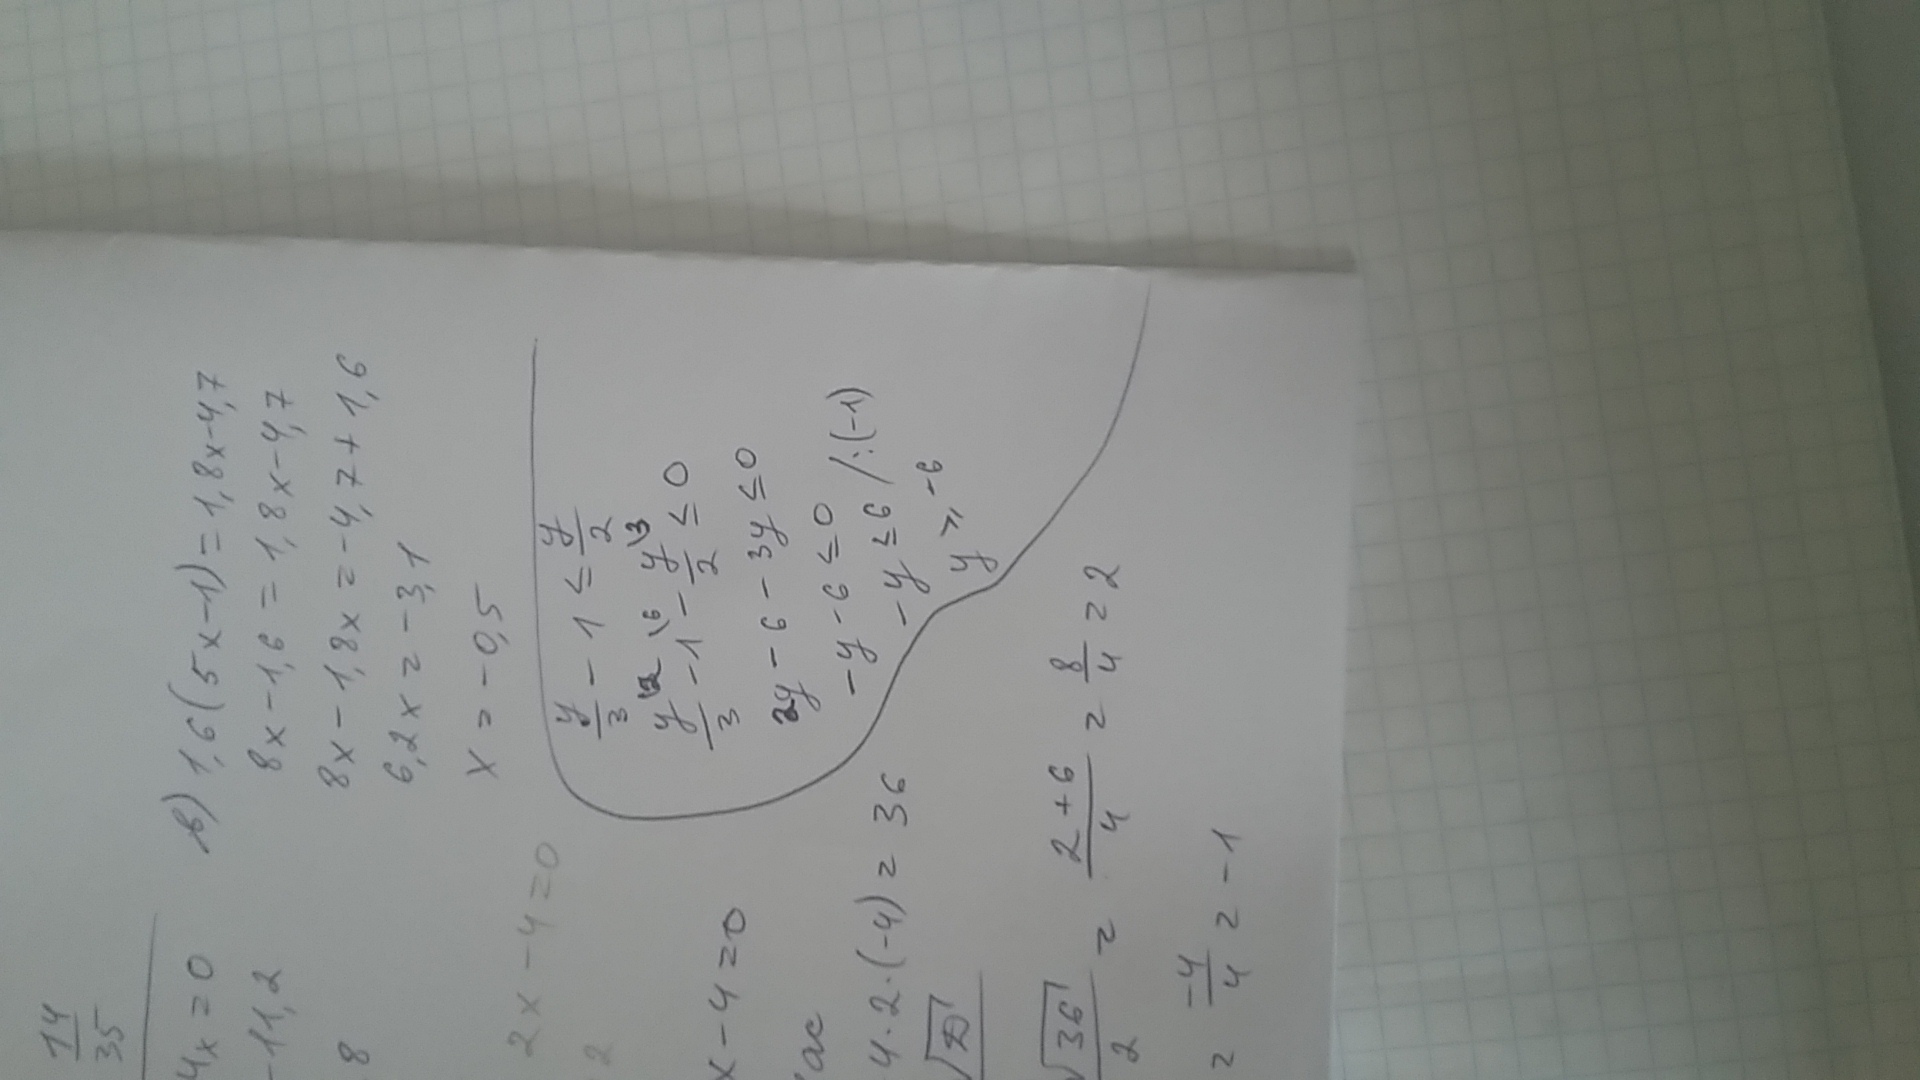 14/35
4x = 0
-11,2
8
в) 1,6(5x-1) = 1,8x-4,7
8x - 1,6 = 1,8x - 4,7
8x - 1,8x = -4,7 + 1,6
6,2x = -3,1
x = -0,5
y/3 - 1 ≤ y/2
y\2/3 - 1\6 - y\3/2 ≤ 0
2y - 6 - 3y ≤ 0
-y - 6 ≤ 0
-y ≤ 6 /:(-1)
y ≥ -6
2x - 4 = 0
2
x - 4 = 0
ac
4·2·(-4) = 36
√D
√36/2 = (2+6)/4 = 8/4 = 2
= -4/4 = -1